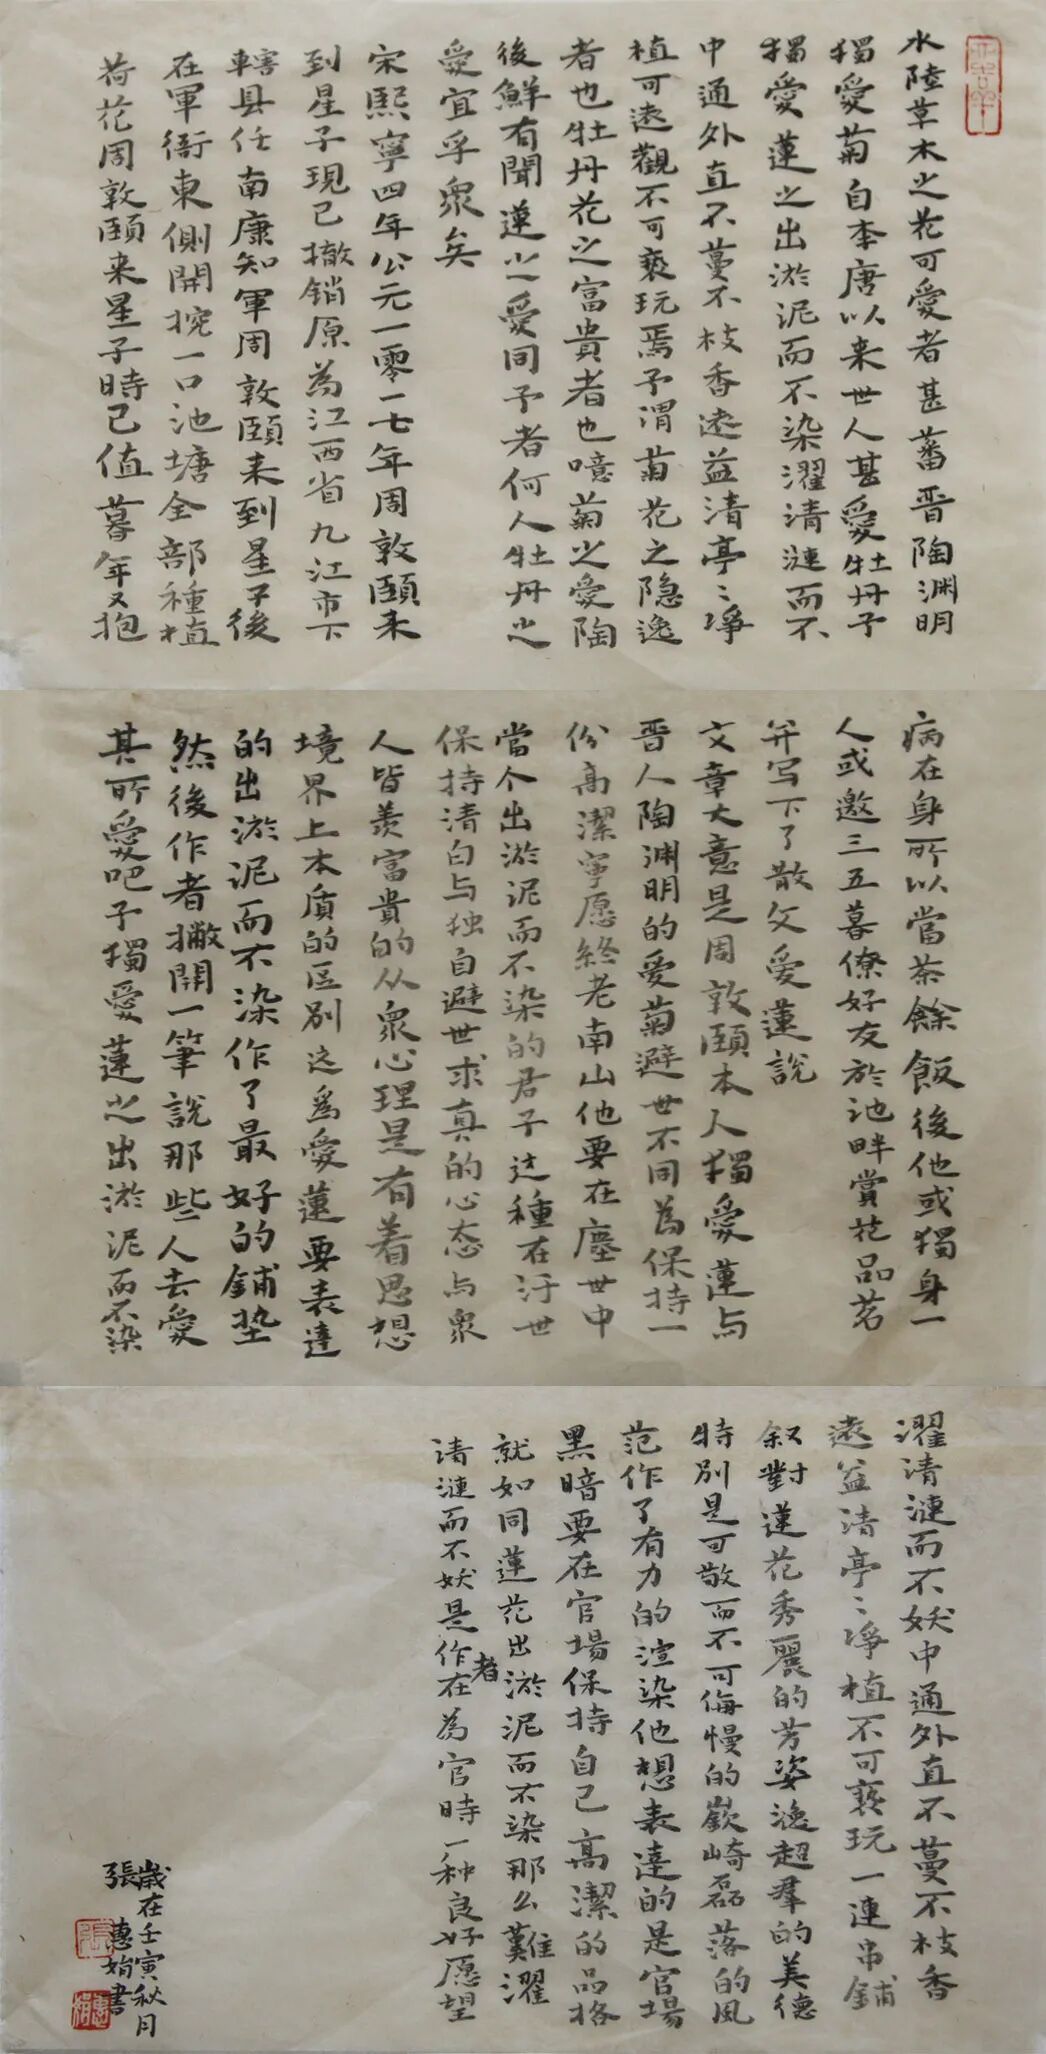 水陸草木之花可愛者甚蕃晋陶渊明
獨愛菊自李唐以来世人甚愛牡丹予
獨愛蓮之出淤泥而不染濯清漣而不
中通外直不蔓不枝香遠益清亭〻凈
植可遠觀不可褻玩焉予渭菊花之隐逸
者也牡丹花之富貴者也噫菊之愛陶
後鮮有聞蓮之愛同予者何人牡丹之
愛宜乎衆矣
宋熙寧四年公元一零一七年周敦颐来
到星子現已撤销原為江西省九江市下
轄县任南康知軍周敦颐来到星子後
在軍衙東側開挖一口池塘全部種植
荷花周敦颐来星子時已值暮年又抱
病在身所以當茶餘飯後他或獨身一
人或邀三五暮僚好友於池畔賞花品茗
并写下了散文爱蓮説
文章大意是周敦颐本人獨愛蓮与
晋人陶渊明的爱菊避世不同為保持一
份高潔寧愿終老南山他要在塵世中
當个出淤泥而不染的君子这種在汙世
保持清白与独自避世求真的心态与衆
人皆羡富貴的从衆心理是有着思想
境界上本质的区别这為愛蓮要表達
的出淤泥而不染作了最好的铺垫
然後作者撇開一筆説那些人去愛
其所愛吧予獨愛蓮之出淤泥而不染
濯清漣而不妖中通外直不蔓不枝香
遠益清亭〻凈植不可褻玩一連串鋪
叙對蓮花秀麗的芳姿逸超羣的美德
特別是可敬而不可侮慢的嶔崎磊落的風
范作了有力的渲染他想表達的是官場
黑暗要在官場保持自己高潔的品格
就如同蓮花出淤泥而不染那么難濯
请漣而不妖是作者在為官時一种良好愿望
歲在壬寅秋月
張惠娟書